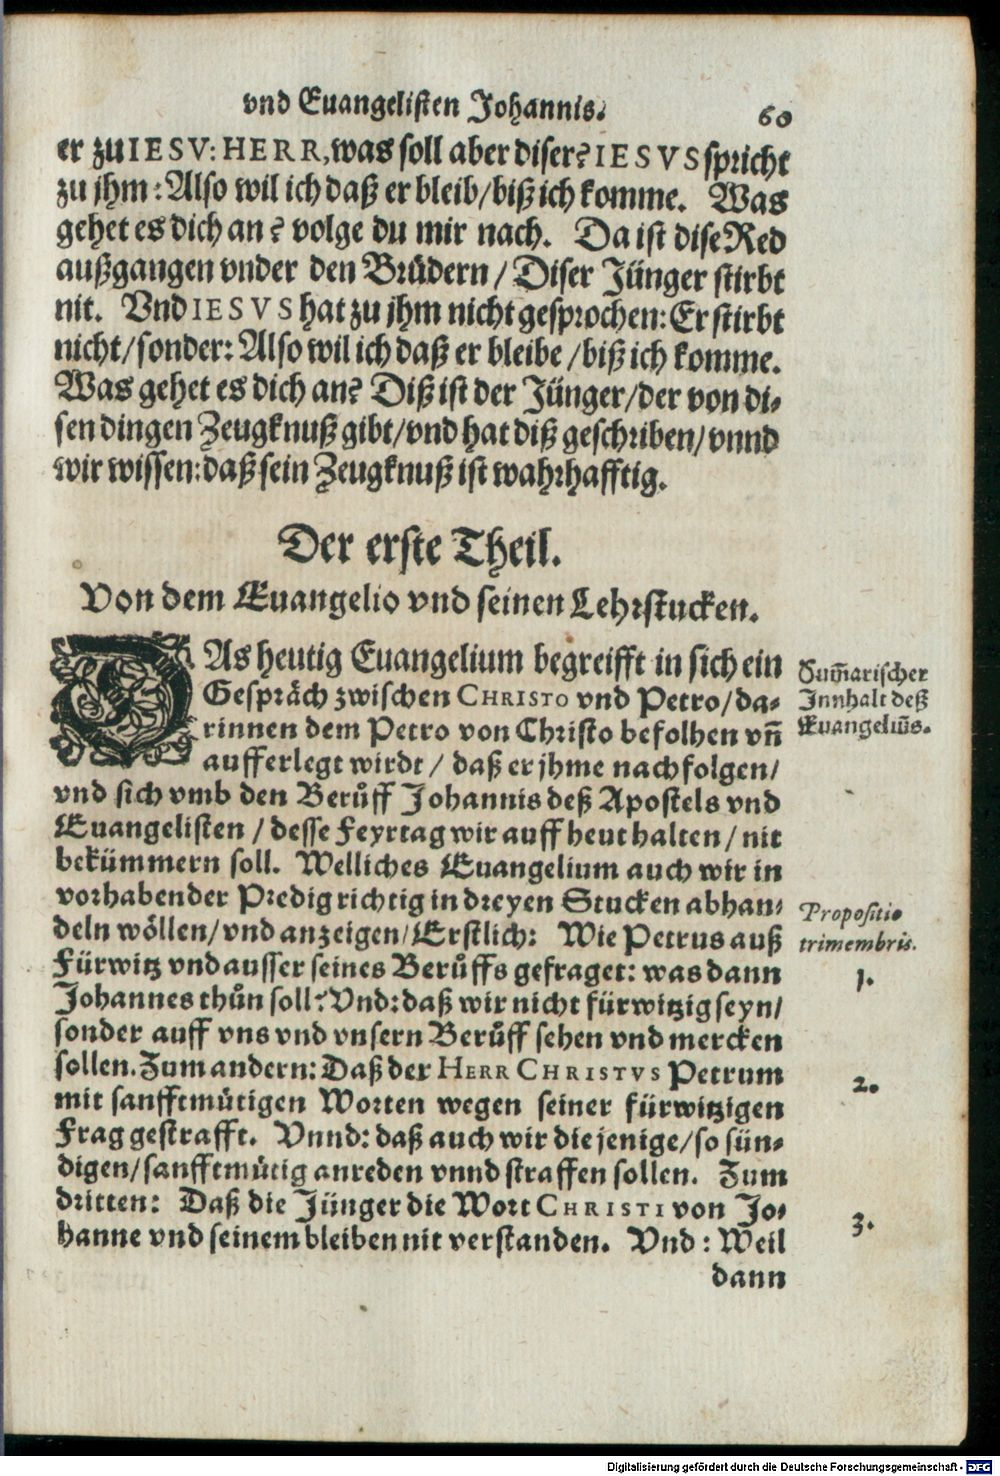 vnd Euangelisten Johannis. 60
er zu IESV: HERR, was soll aber diser? IESVS spricht
zu jhm: Also wil ich daß er bleib/ biß ich komme. Was
gehet es dich an? volge du mir nach. Da ist dise Red
außgangen vnder den Brüdern/ Diser Jünger stirbt
nit. Vnd IESVS hat zu jhm nicht gesprochen: Er stirbt
nicht/ sonder: Also wil ich daß er bleibe/ biß ich komme.
Was gehet es dich an? Diß ist der Jünger/ der von di-
sen dingen Zeugknuß gibt/ vnd hat diß geschriben/ vnnd
wir wissen: daß sein Zeugknuß ist wahrhafftig.
Der erste Theil.
Von dem Euangelio vnd seinen Lehrstucken.
DAs heutig Euangelium begreifft in sich ein
Gespräch zwischen CHRISTO vnd Petro/ da-
rinnen dem Petro von Christo befolhen vñ
aufferlegt wirdt/ daß er jhme nachfolgen/
vnd sich vmb den Berůff Johannis deß Apostels vnd
Euangelisten/ desse Feyrtag wir auff heut halten/ nit
bekümmern soll. Welliches Euangelium auch wir in
vorhabender Predig richtig in dreyen Stucken abhan-
deln wöllen/ vnd anzeigen/ Erstlich: Wie Petrus auß
Fürwitz vnd ausser seines Berůffs gefraget: was dann
Johannes thůn soll? Vnd: daß wir nicht fürwitzig seyn/
sonder auff vns vnd vnsern Berůff sehen vnd mercken
sollen. Zum andern: Daß der HERR CHRISTVS Petrum
mit sanfftmütigen Worten wegen seiner fürwitzigen
Frag gestrafft. Vnnd: daß auch wir die jenige/ so sün-
digen/ sanfftmütig anreden vnnd straffen sollen. Zum
dritten: Daß die Jünger die Wort CHRISTI von Jo-
hanne vnd seinem bleiben nit verstanden. Vnd: Weil
dann
Sum̃arischer
Innhalt deß
Euangeliũs.
Propositio
trimembris.
1.
2.
3.
Digitalisierung gefördert durch die Deutsche Forschungsgemeinschaft - DFG